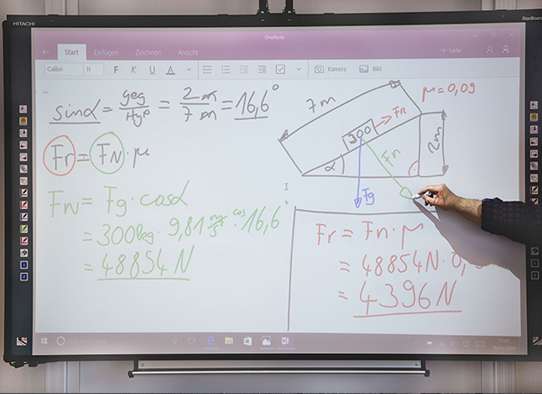 HITACHI
OneNote
Start Einfügen Zeichnen Ansicht
Calibri 11 F K U A Kamera Bild
sinα = geg / Hyp = 2 m / 7 m = 16,6°
Fr = FN · μ
FN = Fg · cosα
= 300kg · 9,81 · cos 16,6
= 48854 N
7 m
μ = 0,09
300
FR
2m
α
Fn
Fg
Fr = Fn · μ
= 48854N · 0,
= 4396N